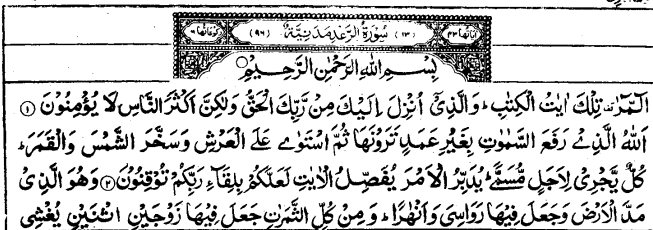 اٰیاتها ۴۳ (۱۳) سُوْرَةُ الرَّعْدِ مَدَنِیَّةٌ (۹۶) رکوعاتها ۶
بِسْمِ اللهِ الرَّحْمٰنِ الرَّحِیْمِ
الٓمّٓرٰ تِلْكَ اٰیٰتُ الْكِتٰبِ ؕ وَالَّذِیْۤ اُنْزِلَ اِلَیْكَ مِنْ رَّبِّكَ الْحَقُّ وَلٰكِنَّ اَكْثَرَ النَّاسِ لَا یُؤْمِنُوْنَ ۝۱
اَللهُ الَّذِیْ رَفَعَ السَّمٰوٰتِ بِغَیْرِ عَمَدٍ تَرَوْنَهَا ثُمَّ اسْتَوٰی عَلَی الْعَرْشِ وَسَخَّرَ الشَّمْسَ وَالْقَمَرَ ؕ
كُلٌّ یَّجْرِیْ لِاَجَلٍ مُّسَمًّی ؕ یُدَبِّرُ الْاَمْرَ یُفَصِّلُ الْاٰیٰتِ لَعَلَّكُمْ بِلِقَآءِ رَبِّكُمْ تُوْقِنُوْنَ ۝۲ وَهُوَ الَّذِیْ
مَدَّ الْاَرْضَ وَجَعَلَ فِیْهَا رَوَاسِیَ وَاَنْهٰرًا ؕ وَمِنْ كُلِّ الثَّمَرٰتِ جَعَلَ فِیْهَا زَوْجَیْنِ اثْنَیْنِ یُغْشِی